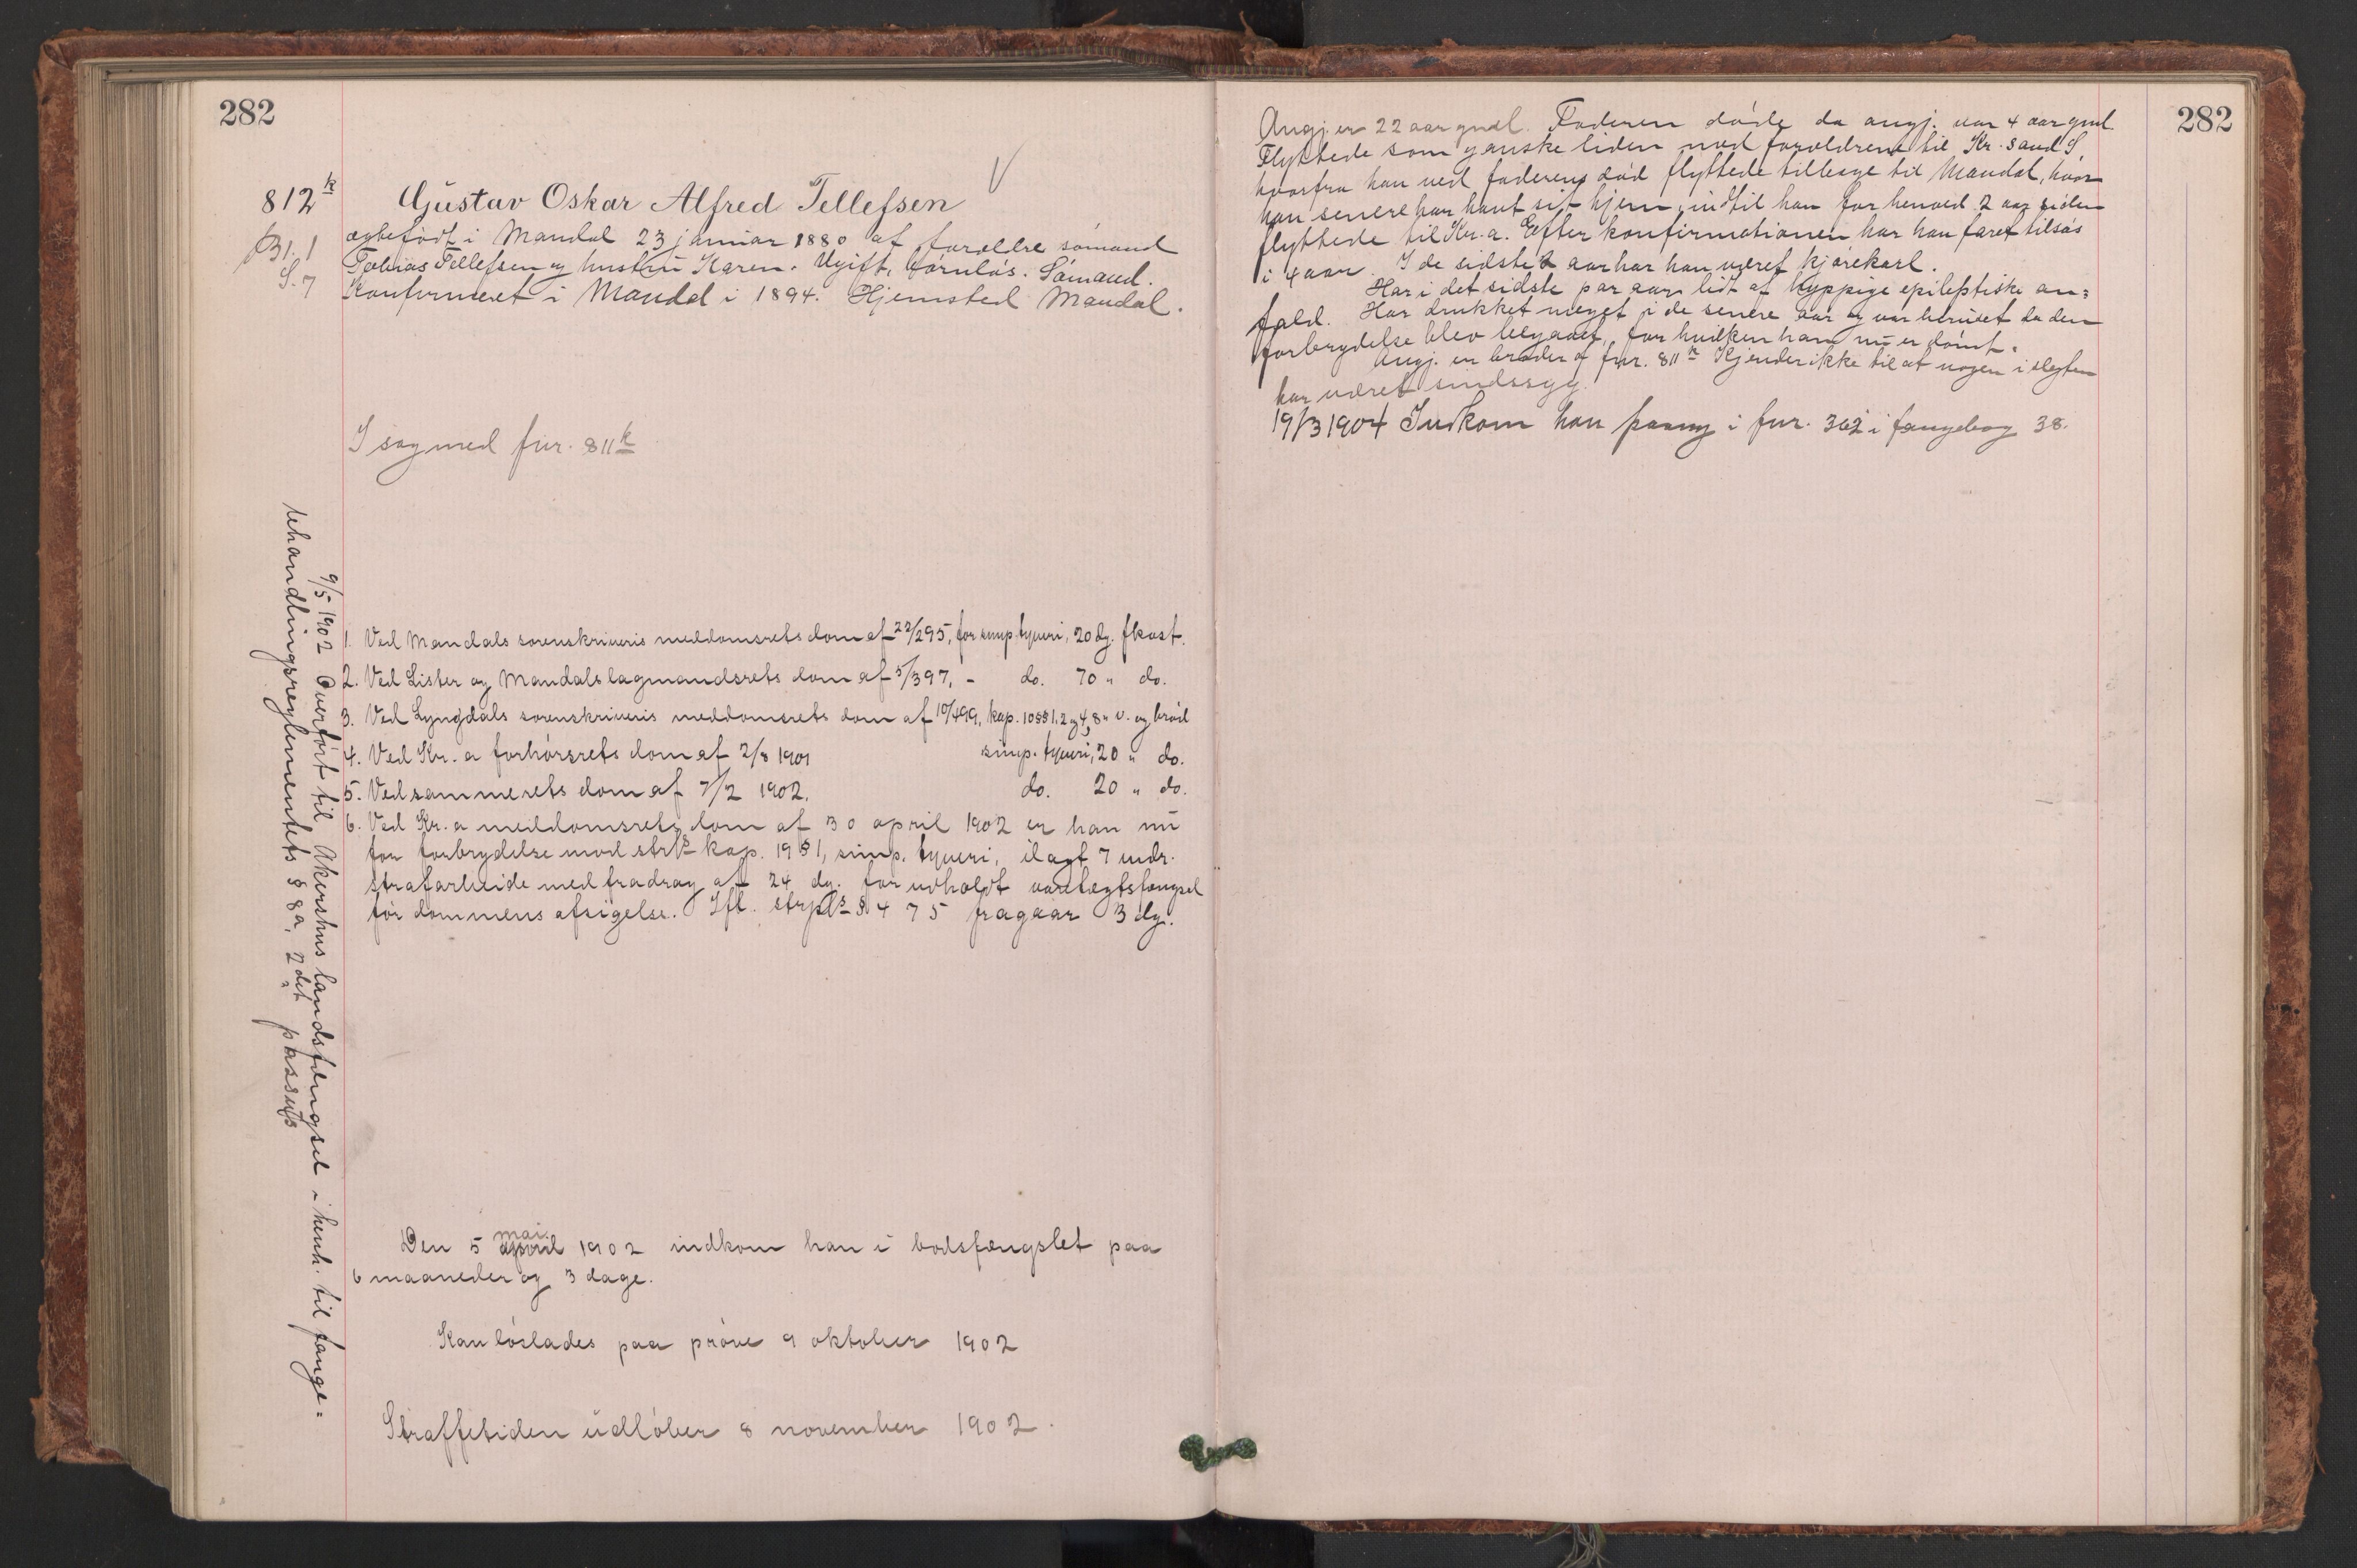 282
812k
Gustav Oskar Alfred Tellefsen
B1. 1
S. 7
ægtefødt i Mandal 23 januar 1880 af forældre sømand
Tobias Tellefsen og hustru Karen. Ugift, børnløs. Sømand.
Konfirmeret i Mandal i 1894. Hjemsted Mandal.
I sag med fnr. 811k
1. Ved Mandals sorenskriveris meddomsrets dom af 22/2 95, for simp. tyveri, 20 dg. fkost.
2. Ved Lister og Mandals lagmandsrets dom af 5/3 97, - do. 70 " do.
3. Ved Lyngdals sorenskriveris meddomsrets dom af 10/4 99, kap. 10 §§ 1, 2 og 4, 8 " v. og brød
4. Ved Kr.a forhørsrets dom af 2/8 1901 simp. tyveri, 20 " do.
5. Ved sammerets dom af 7/2 1902. do. 20 " do.
6. Ved Kr.a meddomsrets dom af 30 april 1902 er han nu
for forbrydelse mod strls kap. 19 § 1, simp. tyveri, ilagt 7 mdr.
strafarbeide med fradrag af 24 dg. for udholdt varetægtsfængsel
før dommens afsigelse. Ifl. strpls § 475 fragaar 3 dg.
9/5 1902 Overført til Akershus landsfængsel i henh. til fange=
behandlingsreglementets § 8 a, 2det passus
Den 5 april mai 1902 indkom han i bodsfængslet paa
6 maaneder og 3 dage.
Kan løslades paa prøve 9 oktober 1902
Straffetiden udløber 8 november 1902.
282
Angj. er 22 aar gml. Faderen døde da angj. var 4 aar gml.
Flyttede som ganske liden med forældrene til Kr.sand S
hvorfra han ved faderens død flyttede tilbage til Mandal, hvor
han senere har havt sit hjem, indtil han for henved 2 aar siden
flyttede til Kr.a. Efter konfirmationen har han faret tilsøs
i 4 aar. I de sidste 2 aar har han været kjørekarl.
Har i det sidste par aar lidt af hyppige epileptiske an=
fald. Har drukket meget i de senere aar og var beruset da den
forbrydelse blev begaaet, for hvilken han nu er dømt.
Angj. er broder af fnr. 811k Kjender ikke til at nogen i slegten
har været sindssyg.
19/3 1904 Indkom han paany i fnr. 362 i fangebog 38.